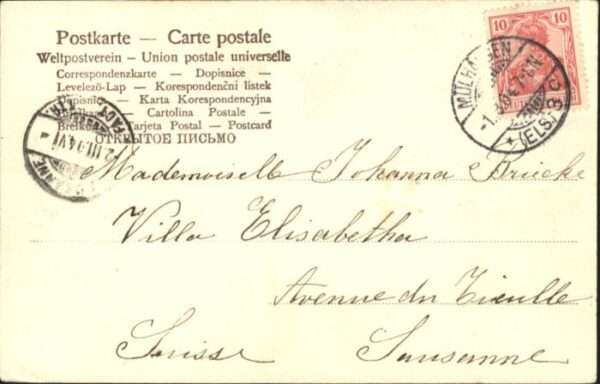 Postkarte — Carte postale
Weltpostverein – Union postale universelle
Correspondenzkarte — Dopisnice —
Levelező-Lap — Korespondenční lístek
Dopisnica — Karta Korespondencyjna
Cartolina Postale —
Tarjeta Postal — Postcard
ОТКРЫТОЕ ПИСЬМО
10 10
MÜLHAUSEN
(ELS.) 3 C
Mademoiselle Johanna Brücke
Villa Elisabetha
Avenue du
Suisse Lausanne